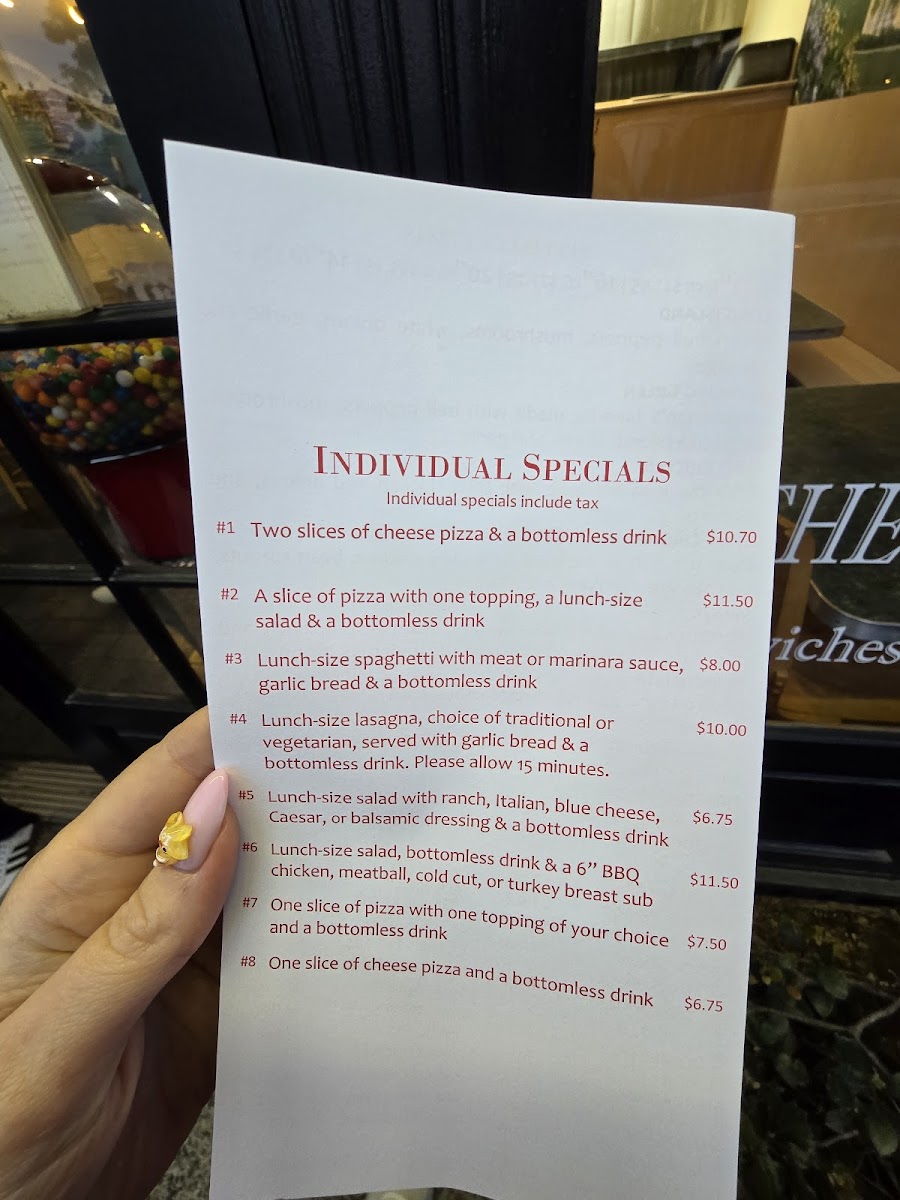 INDIVIDUAL SPECIALS
Individual specials include tax
#1 Two slices of cheese pizza & a bottomless drink $10.70
#2 A slice of pizza with one topping, a lunch-size $11.50
salad & a bottomless drink
#3 Lunch-size spaghetti with meat or marinara sauce, $8.00
garlic bread & a bottomless drink
#4 Lunch-size lasagna, choice of traditional or $10.00
vegetarian, served with garlic bread & a
bottomless drink. Please allow 15 minutes.
#5 Lunch-size salad with ranch, Italian, blue cheese, $6.75
Caesar, or balsamic dressing & a bottomless drink
#6 Lunch-size salad, bottomless drink & a 6” BBQ $11.50
chicken, meatball, cold cut, or turkey breast sub
#7 One slice of pizza with one topping of your choice $7.50
and a bottomless drink
#8 One slice of cheese pizza and a bottomless drink $6.75
THE
wiches